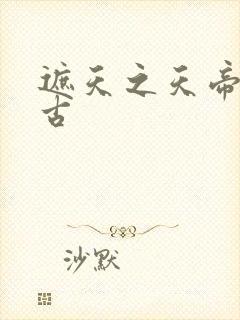 遮天之天帝
古
沙默